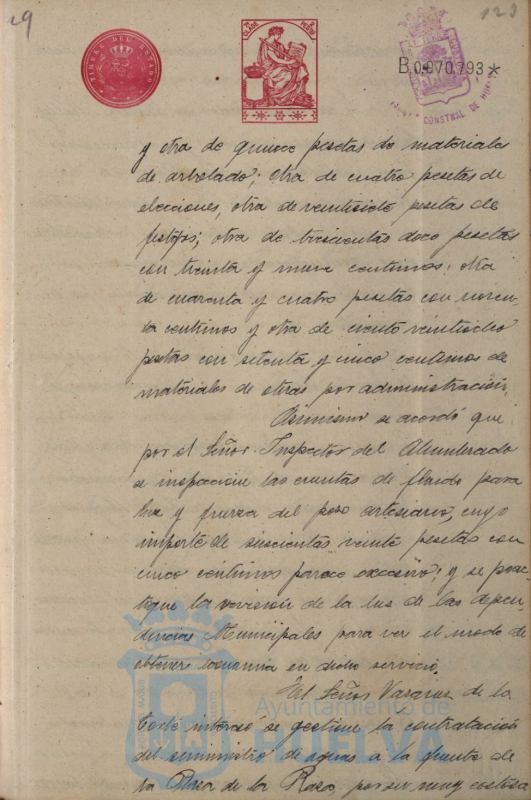 29
123
TIMBRE DEL ESTADO
B.0.970.793*
y otra de quince pesetas de materiales
de arbolado; otra de cuatro pesetas de
elecciones, otra de veintisiete pesetas de
festejos; otra de trescientas doce pesetas
con treinta y nueve centimos; otra
de cuarenta y cuatro pesetas con noven-
ta centimos y otra de ciento veintiocho
pesetas con setenta y cinco centimos de
materiales de obras por administracion,
Asimismo se acordó que
por el Señor Inspector del Alumbrado
se inspeccione las cuentas de fluido para
luz y fuerza del pozo artesiano, cuyo
importe de seiscientas veinte pesetas con
cinco centimos parece excesivo; y se prac-
tique la revision de la luz de las depen-
dencias Municipales para ver el modo de
obtener economia en dicho servicio.
El Señor Vazquez de la
Corte interesó se gestione la contratación
del suministro de aguas a la fuente de
la Plaza de la Rosa, por ser muy costosa
Ayuntamiento de
HUELVA